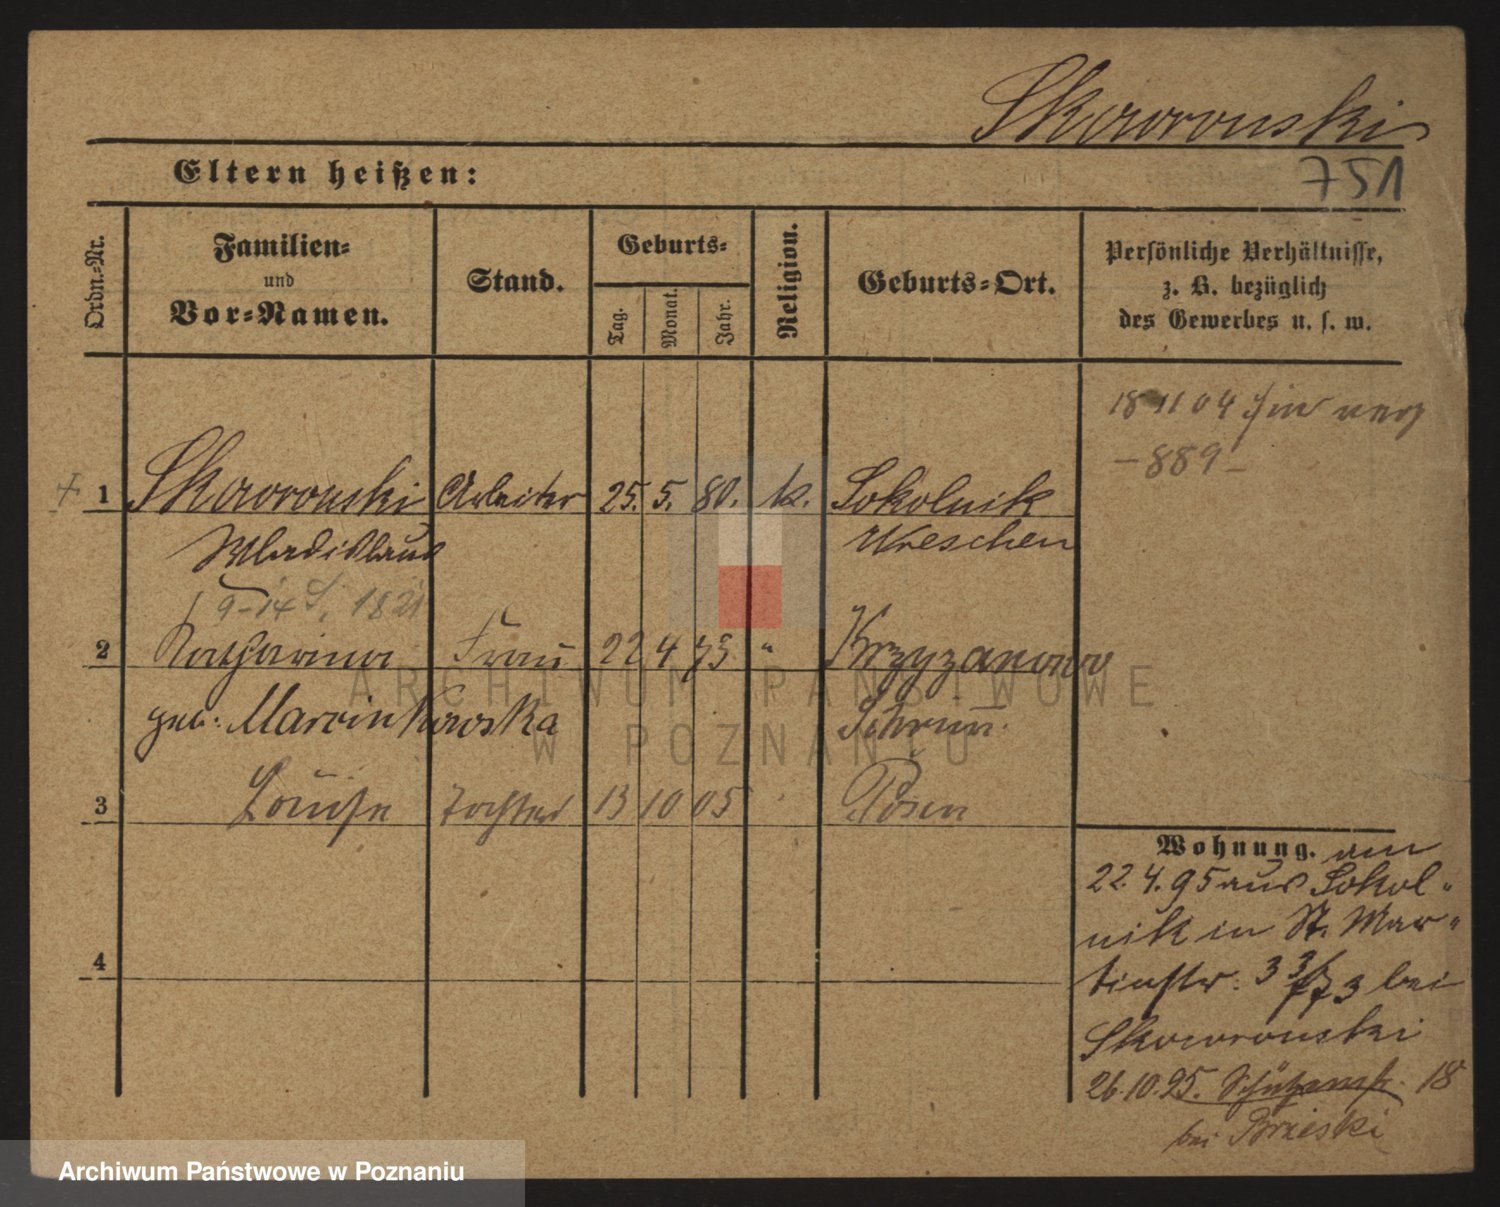 Skowronski
Eltern heißen:
751
Ordn.-Nr.
Familien-
und
Vor-Namen.
Stand.
Geburts-
Tag.
Monat.
Jahr.
Religion.
Geburts-Ort.
Persönliche Verhältnisse,
z. B. bezüglich
des Gewerbes u. s. w.
18 11 04
-889-
1 Skowronski Arbeiter 25. 5. 80. k. Sokolnik
Wladislaus Wreschen
2 Katharina Frau 22 4 73 " Krzyzanowo
geb: Marcinkowska Schrim
3 Louise Tochter 13 10 05 Posen
4
Wohnung. am
22.4.95 aus Sokol-
nik in St. Mar-
tinstr: 33 bei
Skowronski
26.10.95. Schützenstr. 18
bei Brzeski
ARCHIWUM PAŃSTWOWE
W POZNANIU
Archiwum Państwowe w Poznaniu